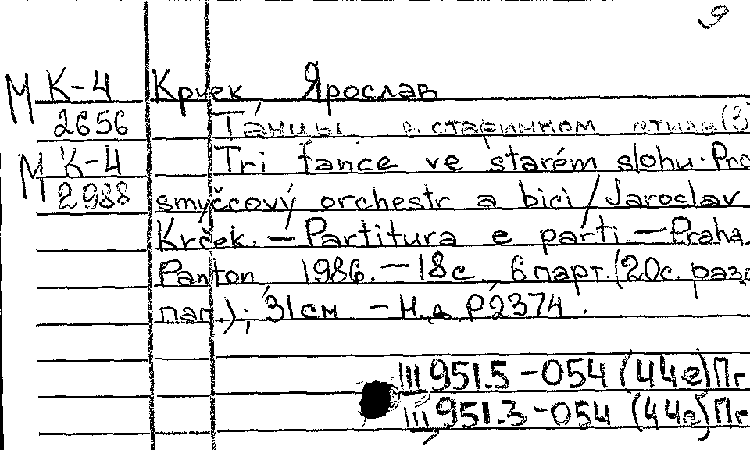 9
М К-4 Крчек, Ярослав
2656 Танцы в старинном стиле (3)
М К-4 Tri tance ve starém slohu. Pro
2988 smyčcový orchestr a bici / Jaroslav
Krček. — Partitura e parti — Praha.
Panton, 1986. — 18 с., 6 парт. (20с. разд
паг.); 31 см — Н.д. P2374.
III 951.5-054 (44е) Пг
III 951.3-054 (44е) Пг